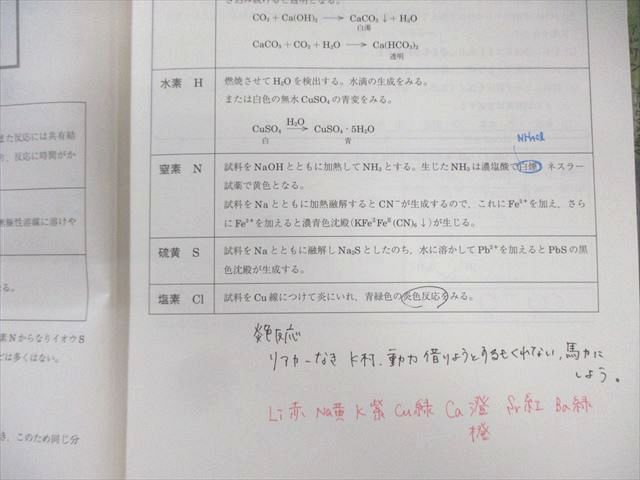 また反応には共有結
、反応に時間がか
無極性溶媒に溶けや
る。
素NからなりイオウS
どは多くはない。
き、このため同じ分
CO₂ + Ca(OH)₂ → CaCO₃↓ + H₂O
白濁
CaCO₃ + CO₂ + H₂O → Ca(HCO₃)₂
透明
水素 H
燃焼させてH₂Oを検出する。水滴の生成をみる。
または白色の無水CuSO₄の青変をみる。
H₂O
CuSO₄ → CuSO₄・5H₂O
白 青
NH₄Cl
窒素 N
試料をNaOHとともに加熱してNH₃とする。生じたNH₃は濃塩酸で白煙、ネスラー
試薬で黄色となる。
試料をNaとともに加熱融解するとCN⁻が生成するので、これにFe³⁺を加え、さら
にFe³⁺を加えると濃青色沈殿(KFe²Feᴵᴵ(CN)₆↓)が生じる。
硫黄 S
試料をNaとともに融解しNa₂Sとしたのち、水に溶かしてPb²⁺を加えるとPbSの黒
色沈殿が生成する。
塩素 Cl
試料をCu線につけて炎にいれ、青緑色の炎色反応をみる。
炎色反応
リアカーなき K村、動力 借りようとするもくれない、馬力に
しよう。
Li赤 Na黄 K紫 Cu緑 Ca 澄 Sr紅 Ba緑
橙